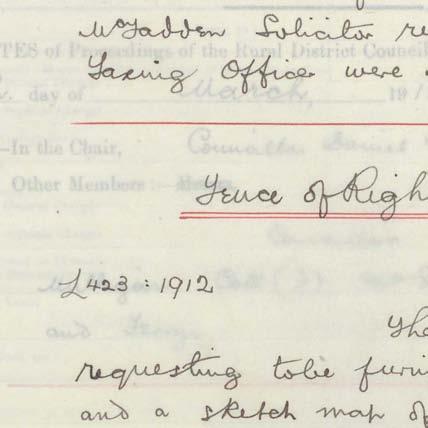 McFadden Solicitor re
Taxing Office were
TES of Proceedings of the Rural District Council
day of March, 19
In the Chair,
Other Members :—
Fence of Righ
L423 : 1912
and
The
requesting to be furni
and a sketch map of